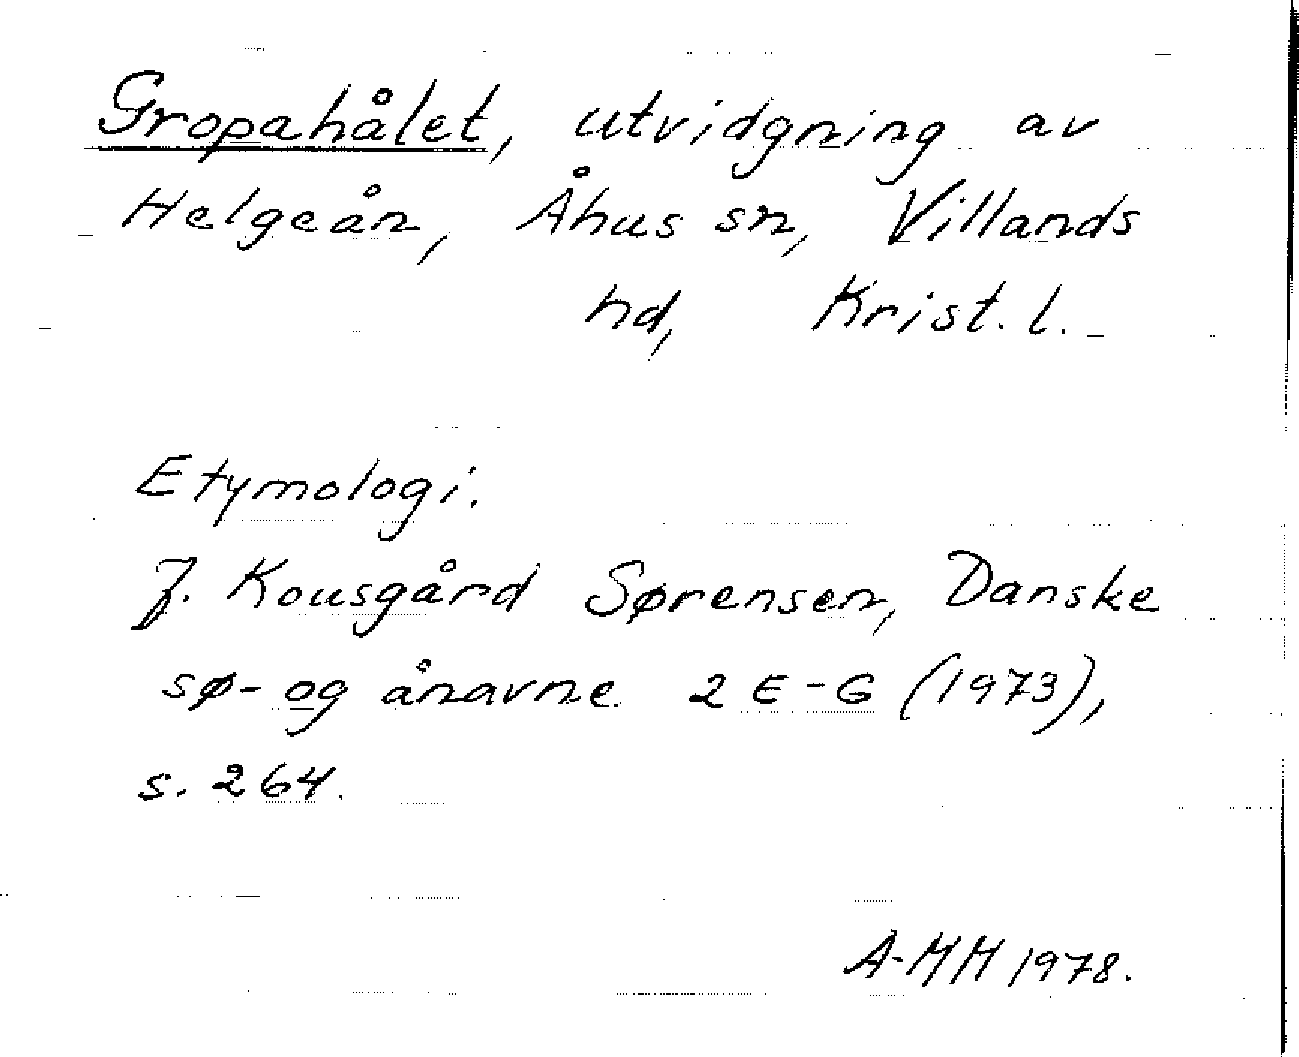 Gropahålet, utvidgning av
Helgeån, Åhus sn, Villands
hd, Krist. l.
Etymologi.
J. Kousgård Sørensen, Danske
sø- og ånavne 2 E-G (1973),
s. 264.
A-MH 1978.